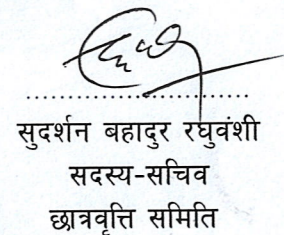 ................................
सुदर्शन बहादुर रघुवंशी
सदस्य-सचिव
छात्रवृत्ति समिति